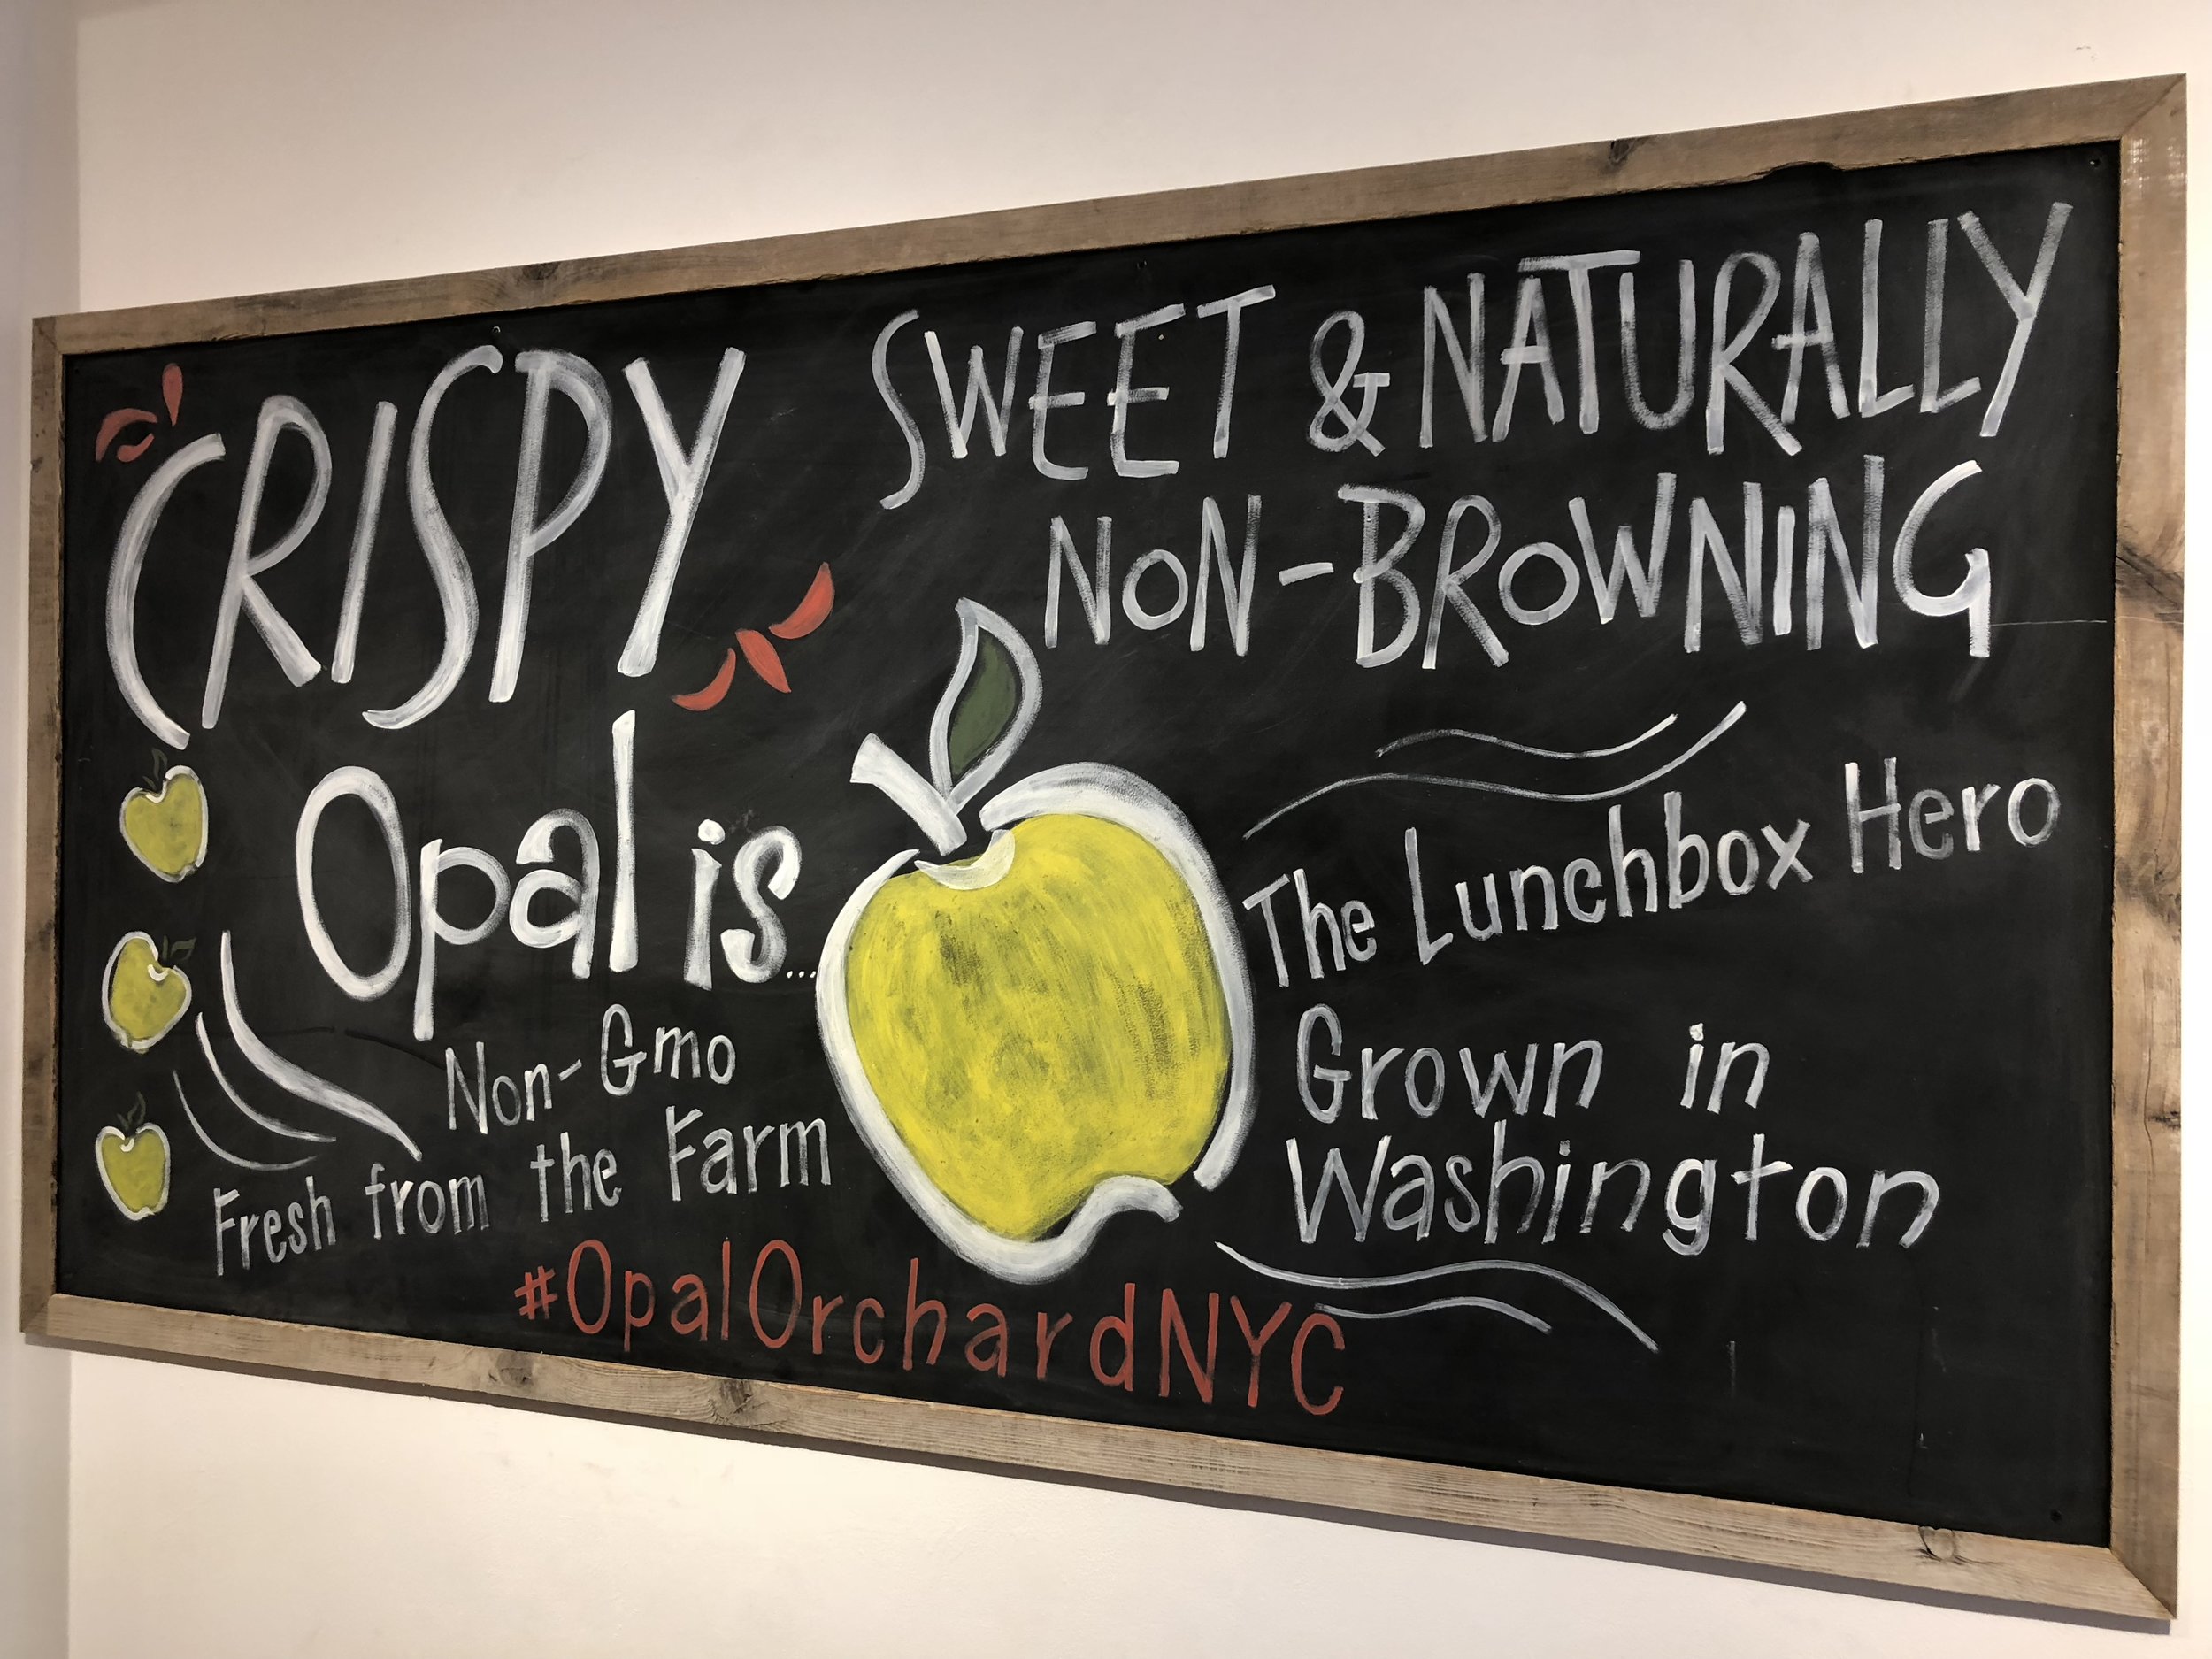 CRISPY
SWEET & NATURALLY
NON-BROWNING
Opal is...
Non-Gmo
Fresh from the Farm
The Lunchbox Hero
Grown in
Washington
#OpalOrchardNYC